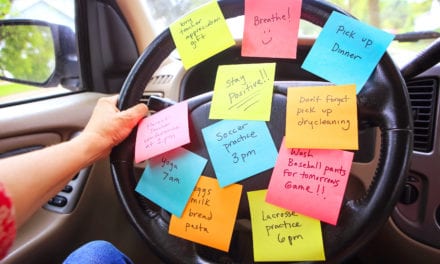 Buy
teacher
appreciation
gift
Breathe!
Pick up
Dinner
Stay
Positive!!
Don't forget
pick up
drycleaning
conference
at 3pm
Soccer
practice
3pm
Wash
Baseball
pants
For tomorrows
Game!!
Yoga
7am
Eggs
milk
bread
pasta
Lacrosse
practice
6pm